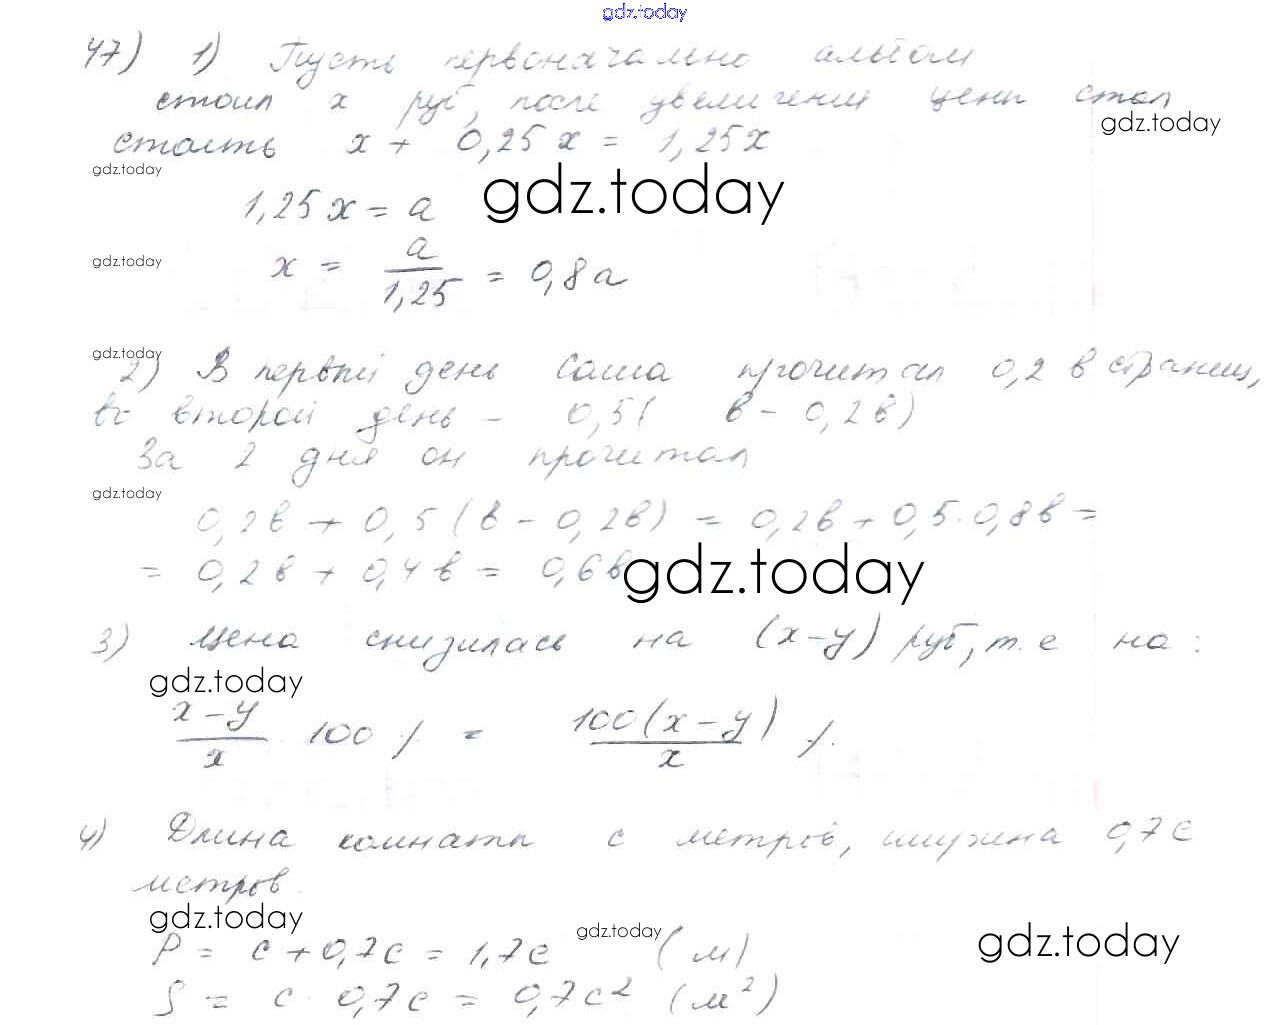 gdz.today
47) 1) Пусть первоначально альбом
стоил x руб, после увеличения цены стал
gdz.today
стоить x + 0,25x = 1,25x
gdz.today
1,25x = a
gdz.today
gdz.today
x = a/1,25 = 0,8a
gdz.today
2) В первый день Саша прочитал 0,2в страниц,
во второй день - 0,5( в - 0,2в)
За 2 дня он прочитал
gdz.today
0,2в + 0,5(в - 0,2в) = 0,2в + 0,5·0,8в =
= 0,2в + 0,4в = 0,6в
gdz.today
3) Цена снизилась на (x-y) руб, т.е на:
gdz.today
x-y/x · 100 % = 100(x-y)/x %.
4) Длина комнаты c метров, ширина 0,7c
метров.
gdz.today
gdz.today
gdz.today
P = c + 0,7c = 1,7c (м)
S = c · 0,7c = 0,7c² (м²)